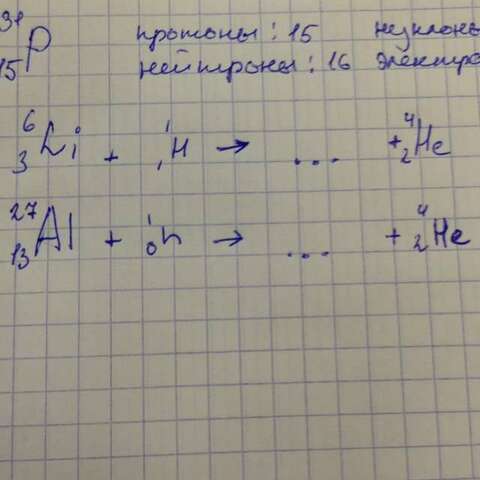 ³¹₁₅P протоны: 15 нуклоны
нейтроны: 16 электро
⁶₃Li + ¹₁H → ... + ⁴₂He
²⁷₁₃Al + ¹₀n → ... + ⁴₂He